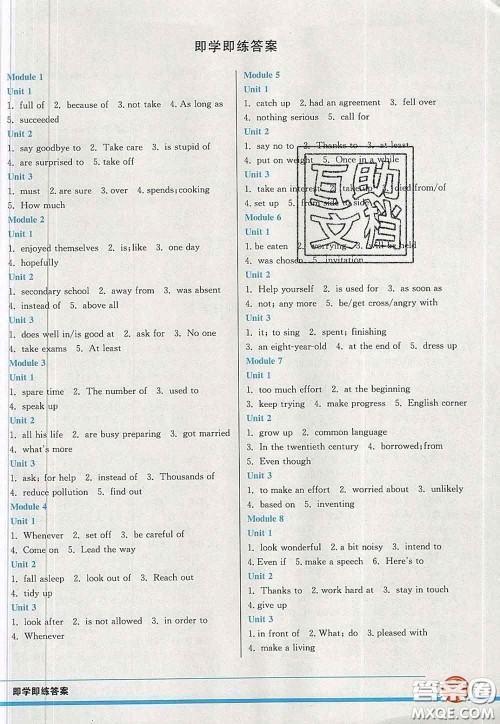 即学即练答案
Module 1
Unit 1
1. full of 2. because of 3. not take 4. As long as
5. succeeded
Unit 2
1. say goodbye to 2. Take care 3. is stupid of
4. are surprised to 5. take off
Unit 3
1. must 2. are sure 3. over 4. spends; cooking
5. How much
Module 2
Unit 1
1. enjoyed themselves 2. is; like 3. one day
4. hopefully
Unit 2
1. secondary school 2. away from 3. was absent
4. instead of 5. above all
Unit 3
1. does well in/is good at 2. ask for 3. No one
4. take exams 5. At least
Module 3
Unit 1
1. spare time 2. The number of 3. used to
4. speak up
Unit 2
1. all his life 2. are busy preparing 3. got married
4. what's more
Unit 3
1. ask; for help 2. instead of 3. Thousands of
4. reduce pollution 5. find out
Module 4
Unit 1
1. Whenever 2. set off 3. be careful of
4. Come on 5. Lead the way
Unit 2
1. fall asleep 2. look out of 3. Reach out
4. tidy up
Unit 3
1. look after 2. is not allowed 3. in order to
4. Whenever
Module 5
Unit 1
1. catch up 2. had an agreement 3. fell over
4. nothing serious 5. call for
Unit 2
1. say no to 2. Thanks to 3. at least
4. put on weight 5. Once in a while
Unit 3
1. take an interest 2. take up 3. died from/of
4. set up 5. from side to side
Module 6
Unit 1
1. be eaten 2. worrying 3. will be held
4. was chosen 5. invitation
Unit 2
1. Help yourself 2. is used for 3. as soon as
4. not; any more 5. be/get cross/angry with
Unit 3
1. it; to sing 2. spent; finishing
3. an eight-year-old 4. at the end of 5. dress up
Module 7
Unit 1
1. too much effort 2. at the beginning
3. keep trying 4. make progress 5. English corner
Unit 2
1. grow up 2. common language
3. In the twentieth century 4. borrowed; from
5. Even though
Unit 3
1. to make an effort 2. worried about 3. unlikely
4. based on 5. inventing
Module 8
Unit 1
1. look wonderful 2. a bit afraid 3. intend to
4. Even if 5. make a speech 6. Here's to
Unit 2
1. Thanks to 2. work hard at 3. stay in touch
4. give up
Unit 3
1. in front of 2. What about 3. pleased with
4. make mistake
互助
文档
即学即练答案
答案圈
MXQE.COM